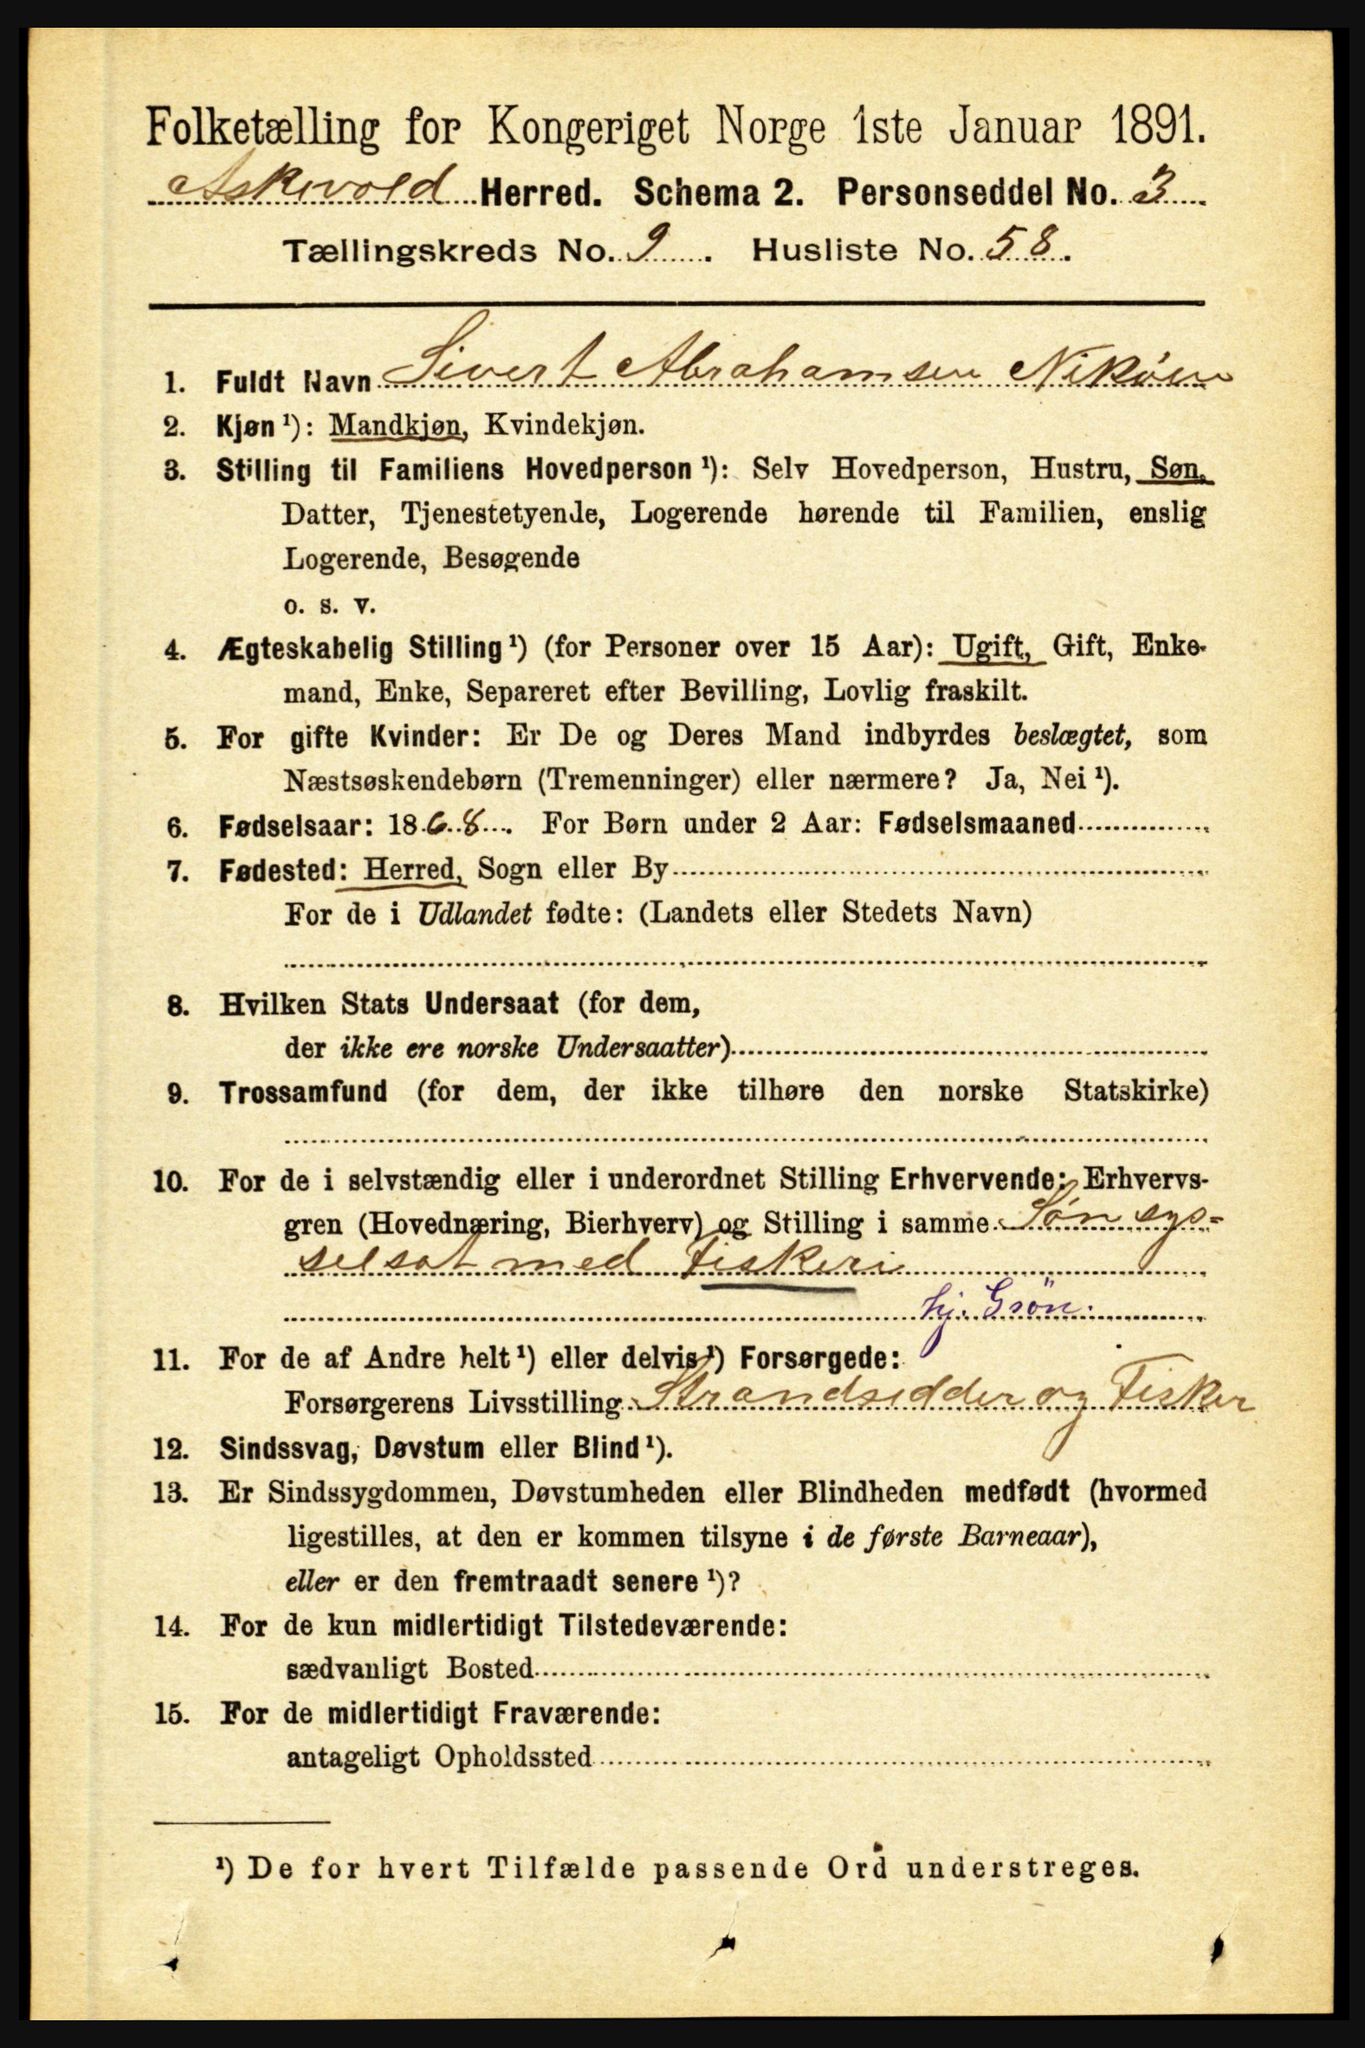 Folketælling for Kongeriget Norge 1ste Januar 1891.
Askevold Herred. Schema 2. Personseddel No. 3
Tællingskreds No. 9. Husliste No. 58.
1. Fuldt Navn Sivert Abrahamsen Nikøen
2. Kjøn ¹): Mandkjøn, Kvindekjøn.
3. Stilling til Familiens Hovedperson ¹): Selv Hovedperson, Hustru, Søn,
Datter, Tjenestetyende, Logerende hørende til Familien, enslig
Logerende, Besøgende
o. s. v.
4. Ægteskabelig Stilling ¹) (for Personer over 15 Aar): Ugift, Gift, Enke-
mand, Enke, Separeret efter Bevilling, Lovlig fraskilt.
5. For gifte Kvinder: Er De og Deres Mand indbyrdes beslægtet, som
Næstsøskendebørn (Tremenninger) eller nærmere? Ja, Nei ¹).
6. Fødselsaar: 1868. For Børn under 2 Aar: Fødselsmaaned
7. Fødested: Herred, Sogn eller By
For de i Udlandet fødte: (Landets eller Stedets Navn)
8. Hvilken Stats Undersaat (for dem,
der ikke ere norske Undersaatter)
9. Trossamfund (for dem, der ikke tilhøre den norske Statskirke)
10. For de i selvstændig eller i underordnet Stilling Erhvervende: Erhvervs-
gren (Hovednæring, Bierhverv) og Stilling i samme Søn sys=
selsat med Fiskeri
hj. Gsøn.
11. For de af Andre helt ¹) eller delvis ¹) Forsørgede:
Forsørgerens Livsstilling Strandsidder og Fisker
12. Sindssvag, Døvstum eller Blind ¹).
13. Er Sindssygdommen, Døvstumheden eller Blindheden medfødt (hvormed
ligestilles, at den er kommen tilsyne i de første Barneaar),
eller er den fremtraadt senere ¹)?
14. For de kun midlertidigt Tilstedeværende:
sædvanligt Bosted
15. For de midlertidigt Fraværende:
antageligt Opholdssted
¹) De for hvert Tilfælde passende Ord understreges.